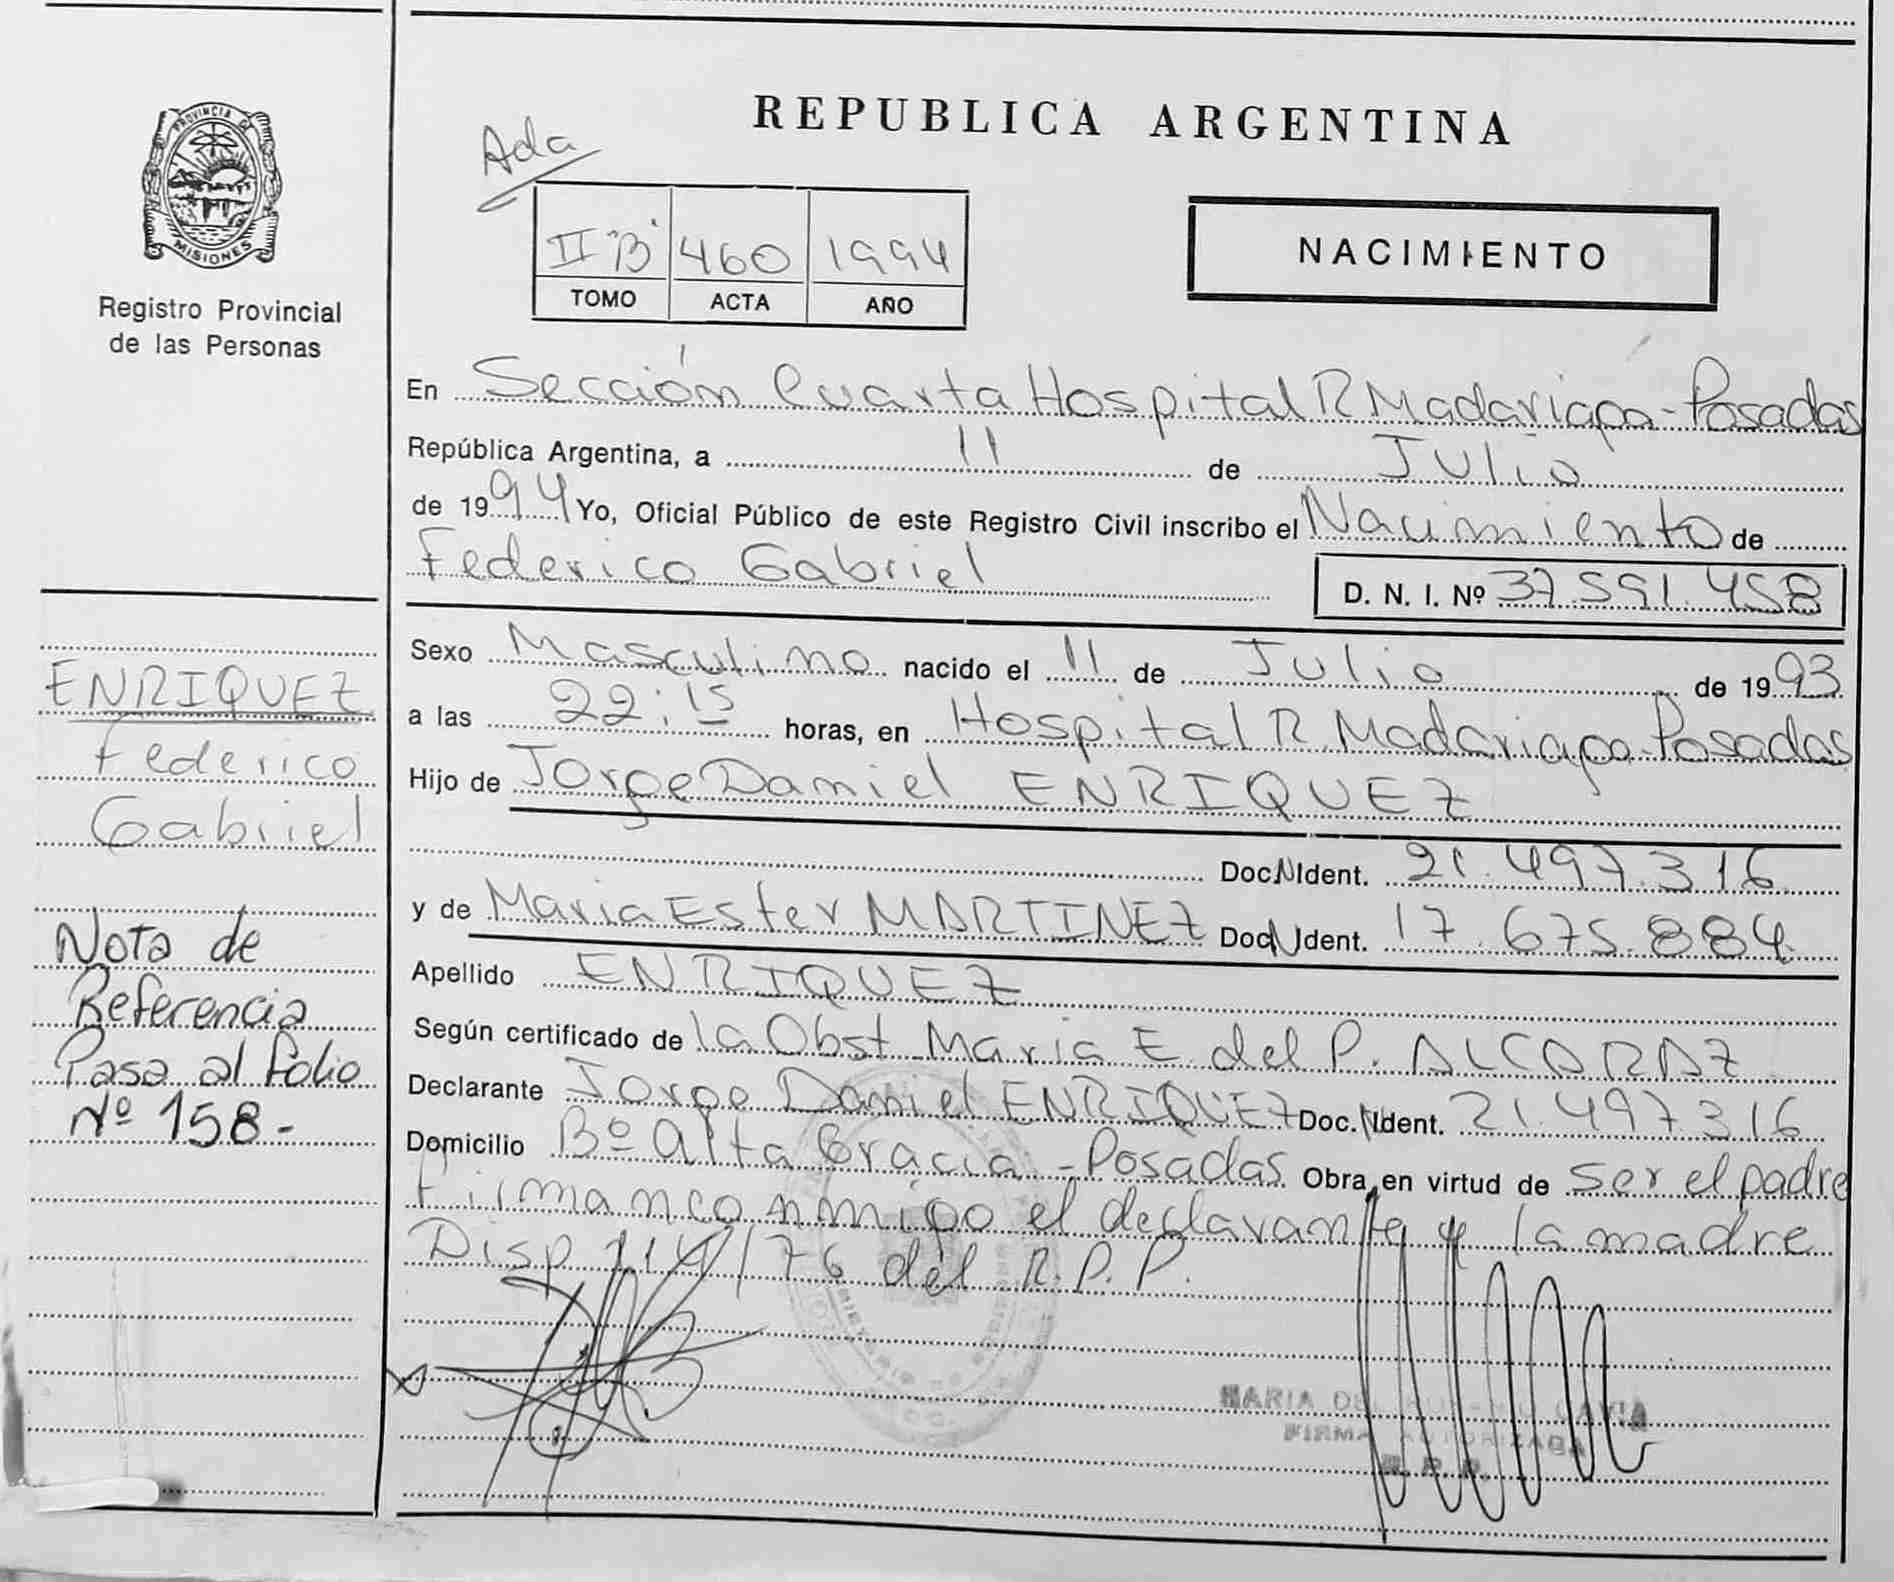 REPUBLICA ARGENTINA
Ada
II "B" 460 1994
TOMO ACTA AÑO
NACIMIENTO
PROVINCIA DE
MISIONES
Registro Provincial
de las Personas
En Sección Cuarta Hospital R Madariaga - Posadas
República Argentina, a 11 de Julio
de 1994 Yo, Oficial Público de este Registro Civil inscribo el Nacimiento de
Federico Gabriel
D. N. I. Nº 37.591.458
Sexo Masculino nacido el 11 de Julio de 1993
a las 22:15 horas, en Hospital R. Madariaga - Posadas
Hijo de Jorge Daniel ENRIQUEZ
Doc.N.Ident. 21.497.316
y de Maria Ester MARTINEZ Doc.N.Ident. 17.675.884
Apellido ENRIQUEZ
Según certificado de la Obst Maria E. del P. ALCARAZ
Declarante Jorge Daniel ENRIQUEZ Doc.N.Ident. 21.497.316
Domicilio Bº Alta Gracia - Posadas Obra en virtud de ser el padre
Firman conmigo el declarante y la madre
Disp 114/76 del R.P.P.
MARIA DEL CAVIA
FIRMA AUTORIZADA
R. P. P.
ENRIQUEZ
Federico
Gabriel
Nota de
Referencia
Pasa al folio
Nº 158-